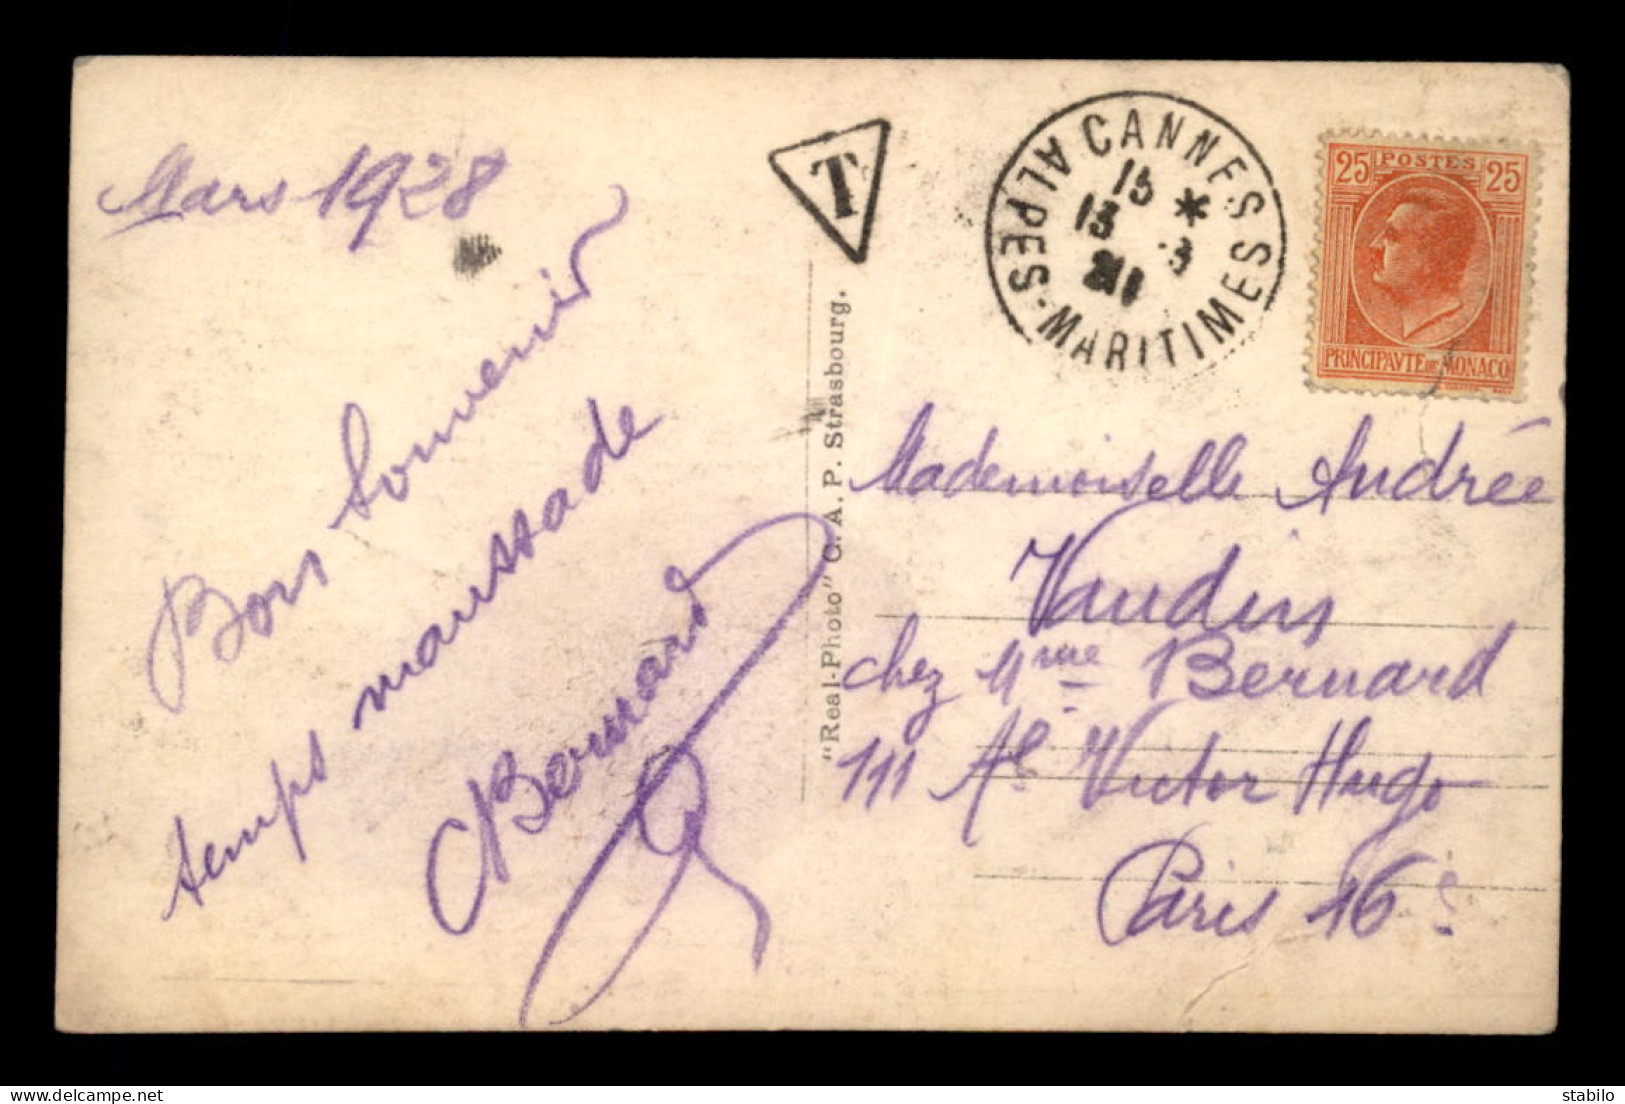 Mars 1928
Bons souvenir
temps maussade
Bernard
T
CANNES
ALPES-MARITIMES
15 *
13 3
25 POSTES 25
PRINCIPAVTE DE MONACO
"Real-Photo" C. A. P. Strasbourg.
Mademoiselle Andrée
Vaudin
chez Mme Bernard
111 Victor Hugo
Paris 16e
stabilo